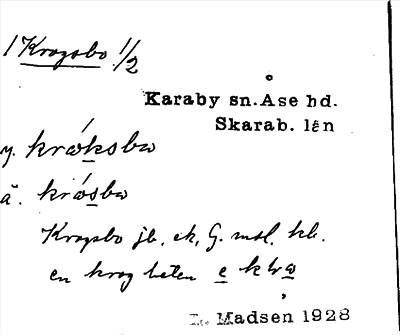 1 Krogsbo 1/2
Karaby sn. Åse hd.
Skarab. län
y. kråksbω
ä. kråsbω
Krogsbo jb, ek, G. msl. kb.
en krog heten e k
Madsen 1928